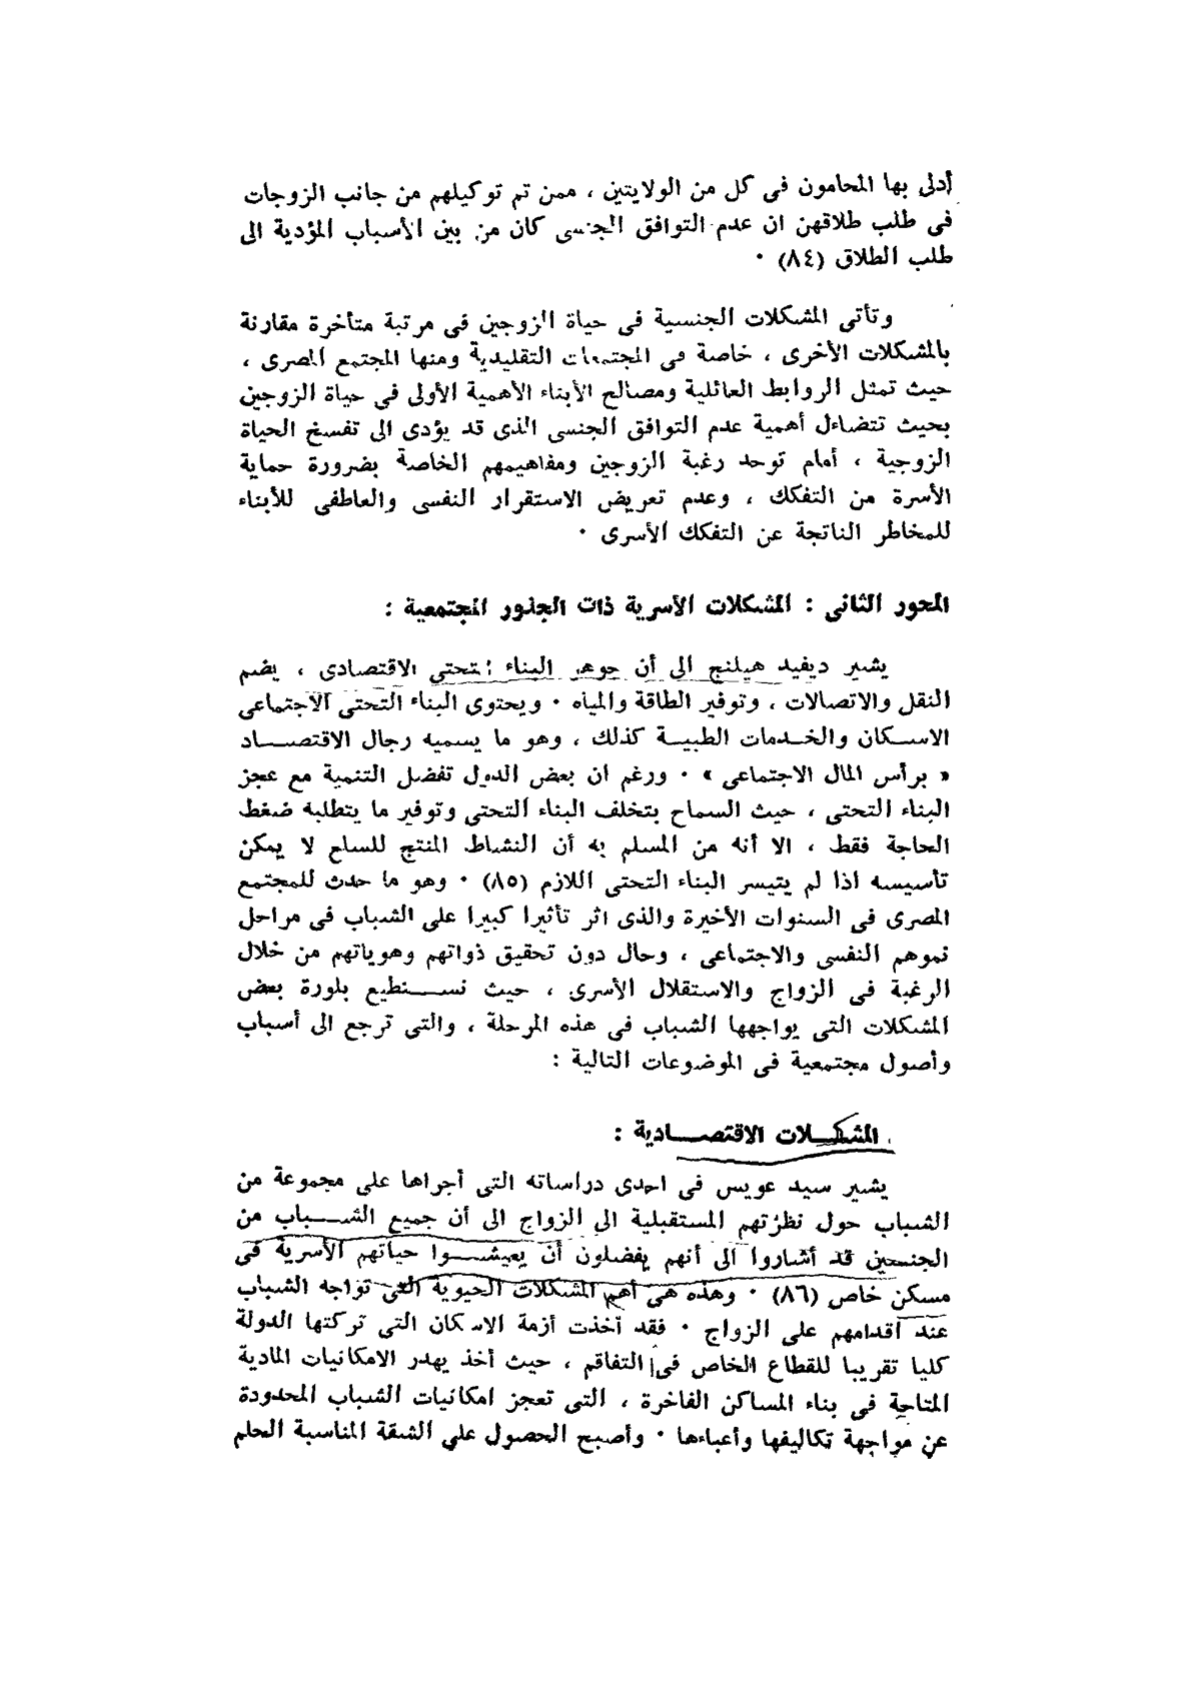 أدلى بها المحامون فى كل من الولايتين ، ممن تم توكيلهم من جانب الزوجات
فى طلب طلاقهن ان عدم التوافق الجنسى كان من بين الأسباب المؤدية الى
طلب الطلاق (٨٤) ٠
وتأتى المشكلات الجنسية فى حياة الزوجين فى مرتبة متأخرة مقارنة
بالمشكلات الأخرى ، خاصة فى المجتمعات التقليدية ومنها المجتمع المصرى ،
حيث تمثل الروابط العائلية ومصالح الأبناء الأهمية الأولى فى حياة الزوجين
بحيث تتضاءل أهمية عدم التوافق الجنسى الذى قد يؤدى الى تفسخ الحياة
الزوجية ، أمام توحد رغبة الزوجين ومفاهيمهم الخاصة بضرورة حماية
الأسرة من التفكك ، وعدم تعريض الاستقرار النفسى والعاطفى للأبناء
للمخاطر الناتجة عن التفكك الأسرى ٠
المحور الثانى : المشكلات الأسرية ذات الجذور المجتمعية :
يشير ديفيد هيلنج الى أن جوهر البناء التحتى الاقتصادى ، يضم
النقل والاتصالات ، وتوفير الطاقة والمياه ٠ ويحتوى البناء التحتى الاجتماعى
الاسكان والخدمات الطبية كذلك ، وهو ما يسميه رجال الاقتصاد
« برأس المال الاجتماعى » ٠ ورغم ان بعض الدول تفضل التنمية مع عجز
البناء التحتى ، حيث السماح بتخلف البناء التحتى وتوفير ما يتطلبه ضغط
الحاجة فقط ، الا أنه من المسلم به أن النشاط المنتج للسلع لا يمكن
تأسيسه اذا لم يتيسر البناء التحتى اللازم (٨٥) ٠ وهو ما حدث للمجتمع
المصرى فى السنوات الأخيرة والذى اثر تأثيرا كبيرا على الشباب فى مراحل
نموهم النفسى والاجتماعى ، وحال دون تحقيق ذواتهم وهوياتهم من خلال
الرغبة فى الزواج والاستقلال الأسرى ، حيث نستطيع بلورة بعض
المشكلات التى يواجهها الشباب فى هذه المرحلة ، والتى ترجع الى أسباب
وأصول مجتمعية فى الموضوعات التالية :
المشكلات الاقتصادية :
يشير سيد عويس فى احدى دراساته التى أجراها على مجموعة من
الشباب حول نظرتهم المستقبلية الى الزواج الى أن جميع الشباب من
الجنسين قد أشاروا الى أنهم يفضلون أن يعيشوا حياتهم الأسرية فى
مسكن خاص (٨٦) ٠ وهذه هى أهم المشكلات الحيوية التى تواجه الشباب
عند اقدامهم على الزواج ٠ فقد أخذت أزمة الاسكان التى تركتها الدولة
كليا تقريبا للقطاع الخاص فى التفاقم ، حيث أخذ يهدر الامكانيات المادية
المتاحة فى بناء المساكن الفاخرة ، التى تعجز امكانيات الشباب المحدودة
عن مواجهة تكاليفها وأعباءها ٠ وأصبح الحصول على الشقة المناسبة الحلم